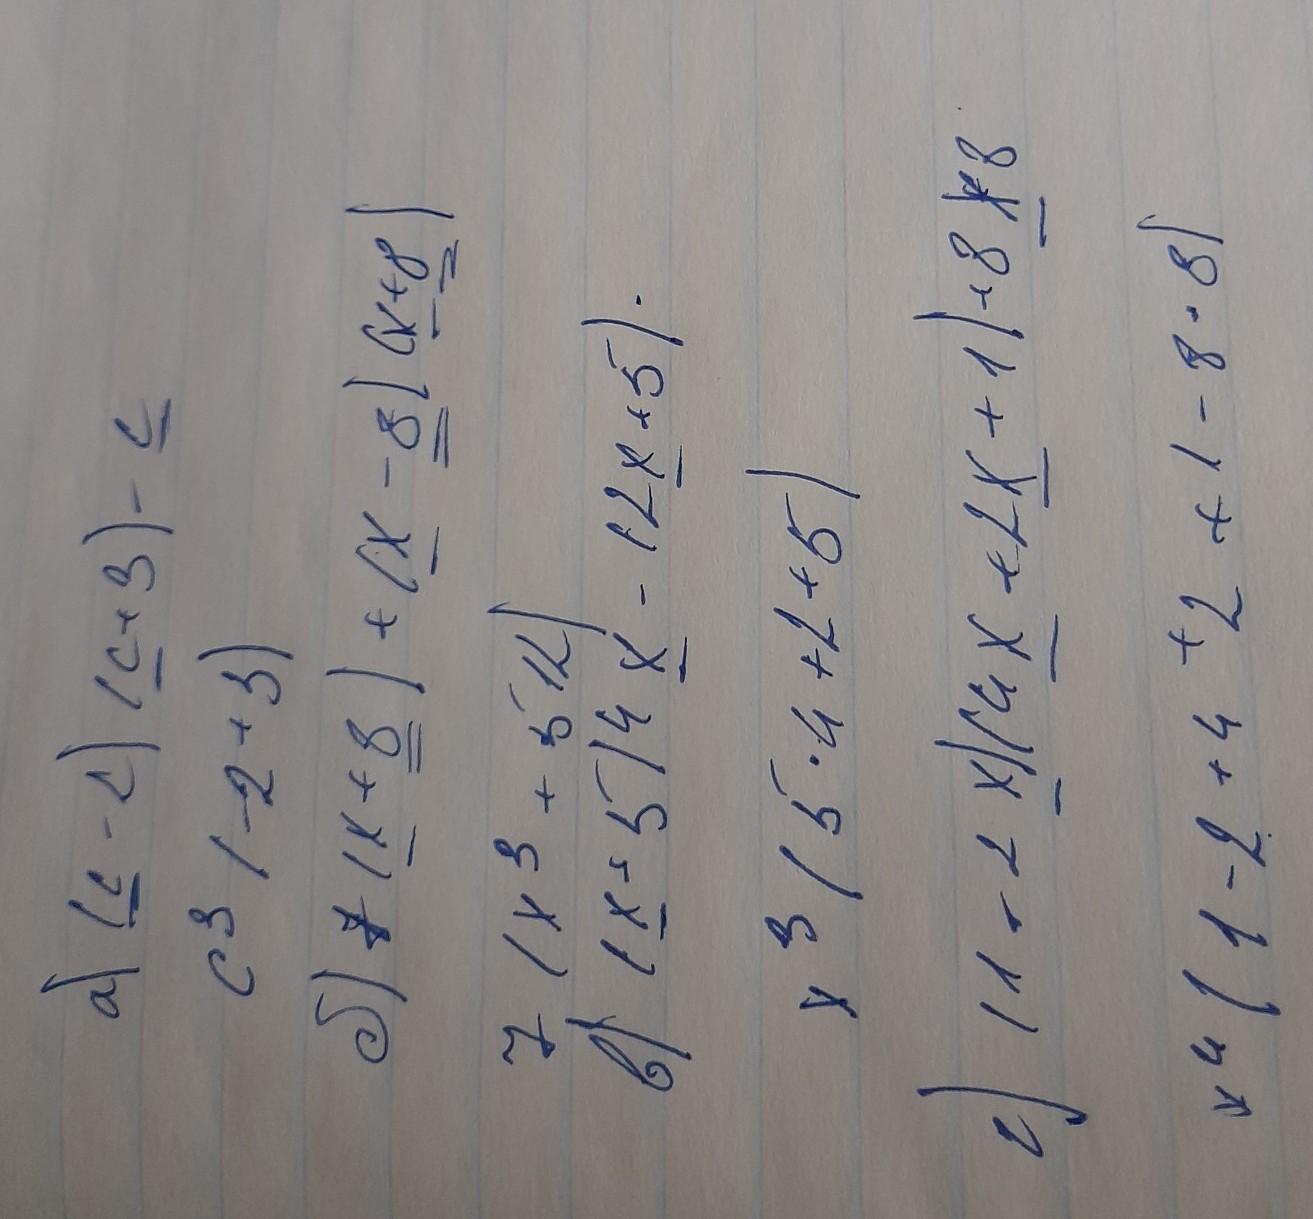 а) (c - 2) (c + 3) - c
c³ (-2 + 3)
б) 7 (x + 8) + (x - 8) (x + 8)
7 (x³ + 512)
в) (x + 5) 4x - (2x + 5).
x³ (5 · 4 + 2 + 5)
г) (1 - 2x) (4x + 2x + 1) + 8x · 8
x⁴ (1 - 2 + 4 + 2 + 1 - 8 · 8)